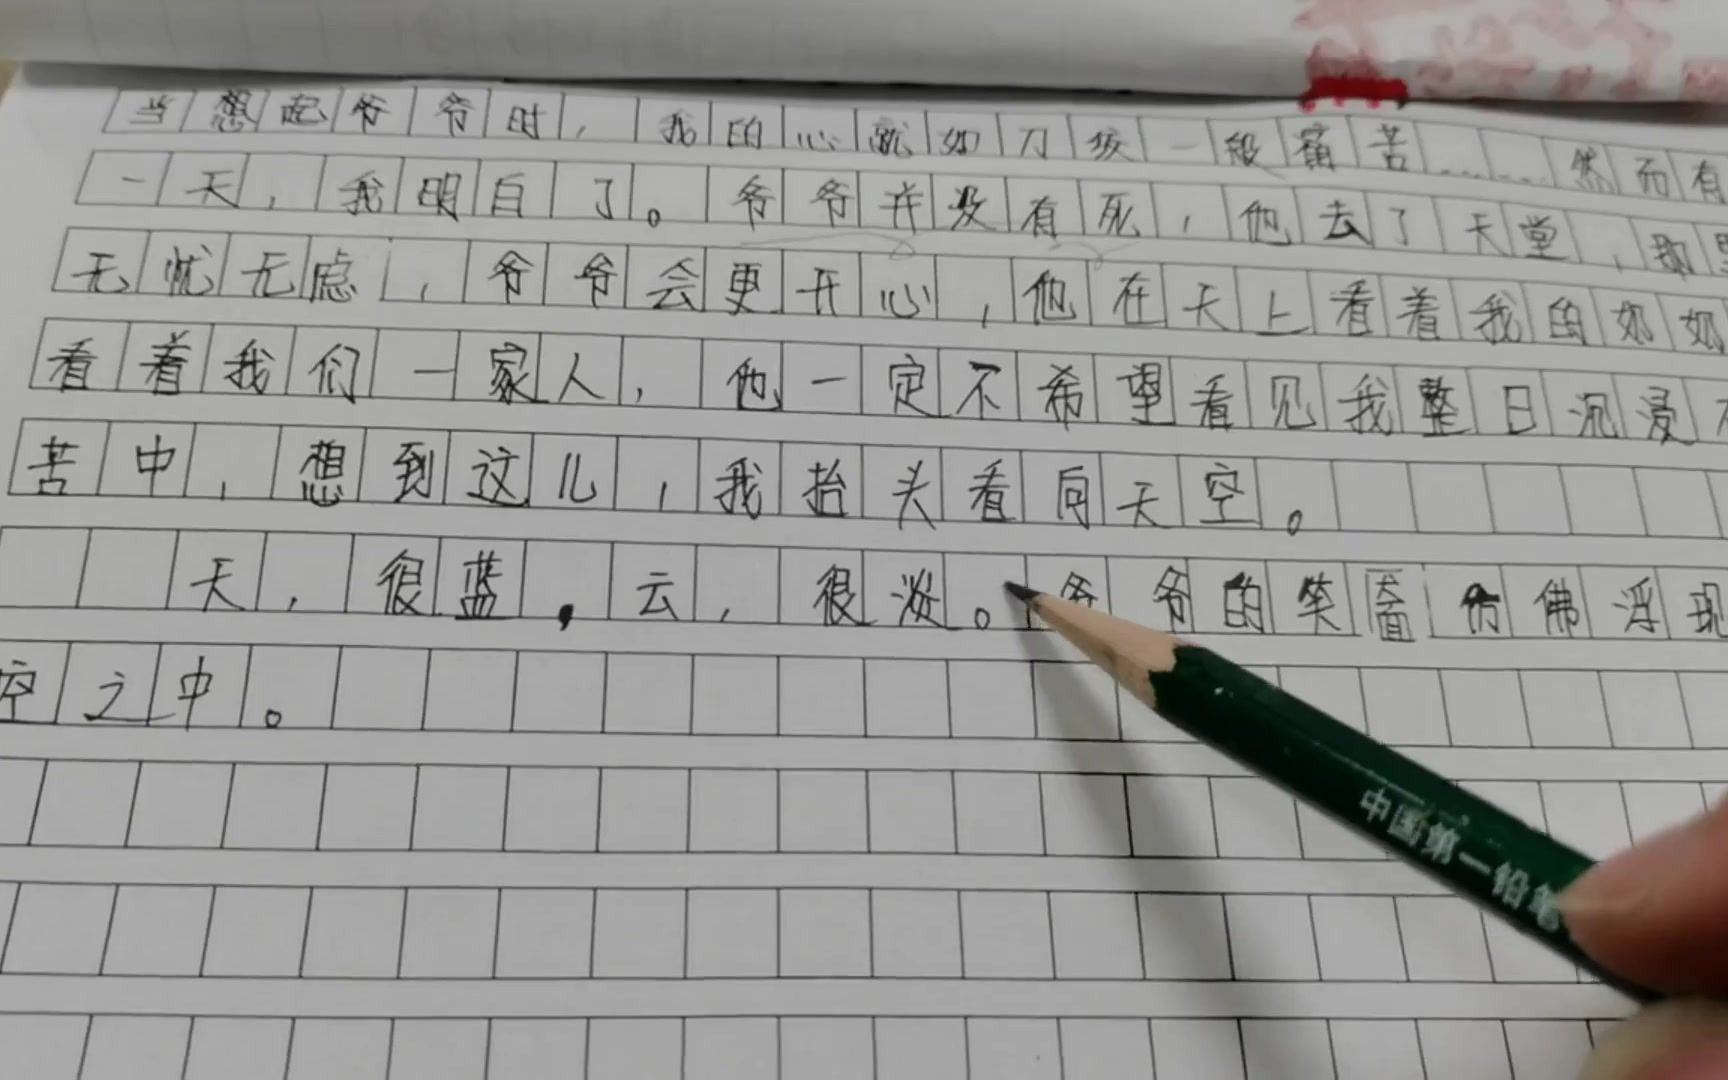 当想起爷爷时，我的心就如刀绞一般痛苦……然而有
一天，我明白了。爷爷并没有死，他去了天堂，那里
无忧无虑，爷爷会更开心，他在天上看着我的奶奶
看着我们一家人，他一定不希望看见我整日沉浸
苦中，想到这儿，我抬头看向天空。
天，很蓝，云，很淡。爷爷的笑靥仿佛浮现
空之中。
中国第一铅笔